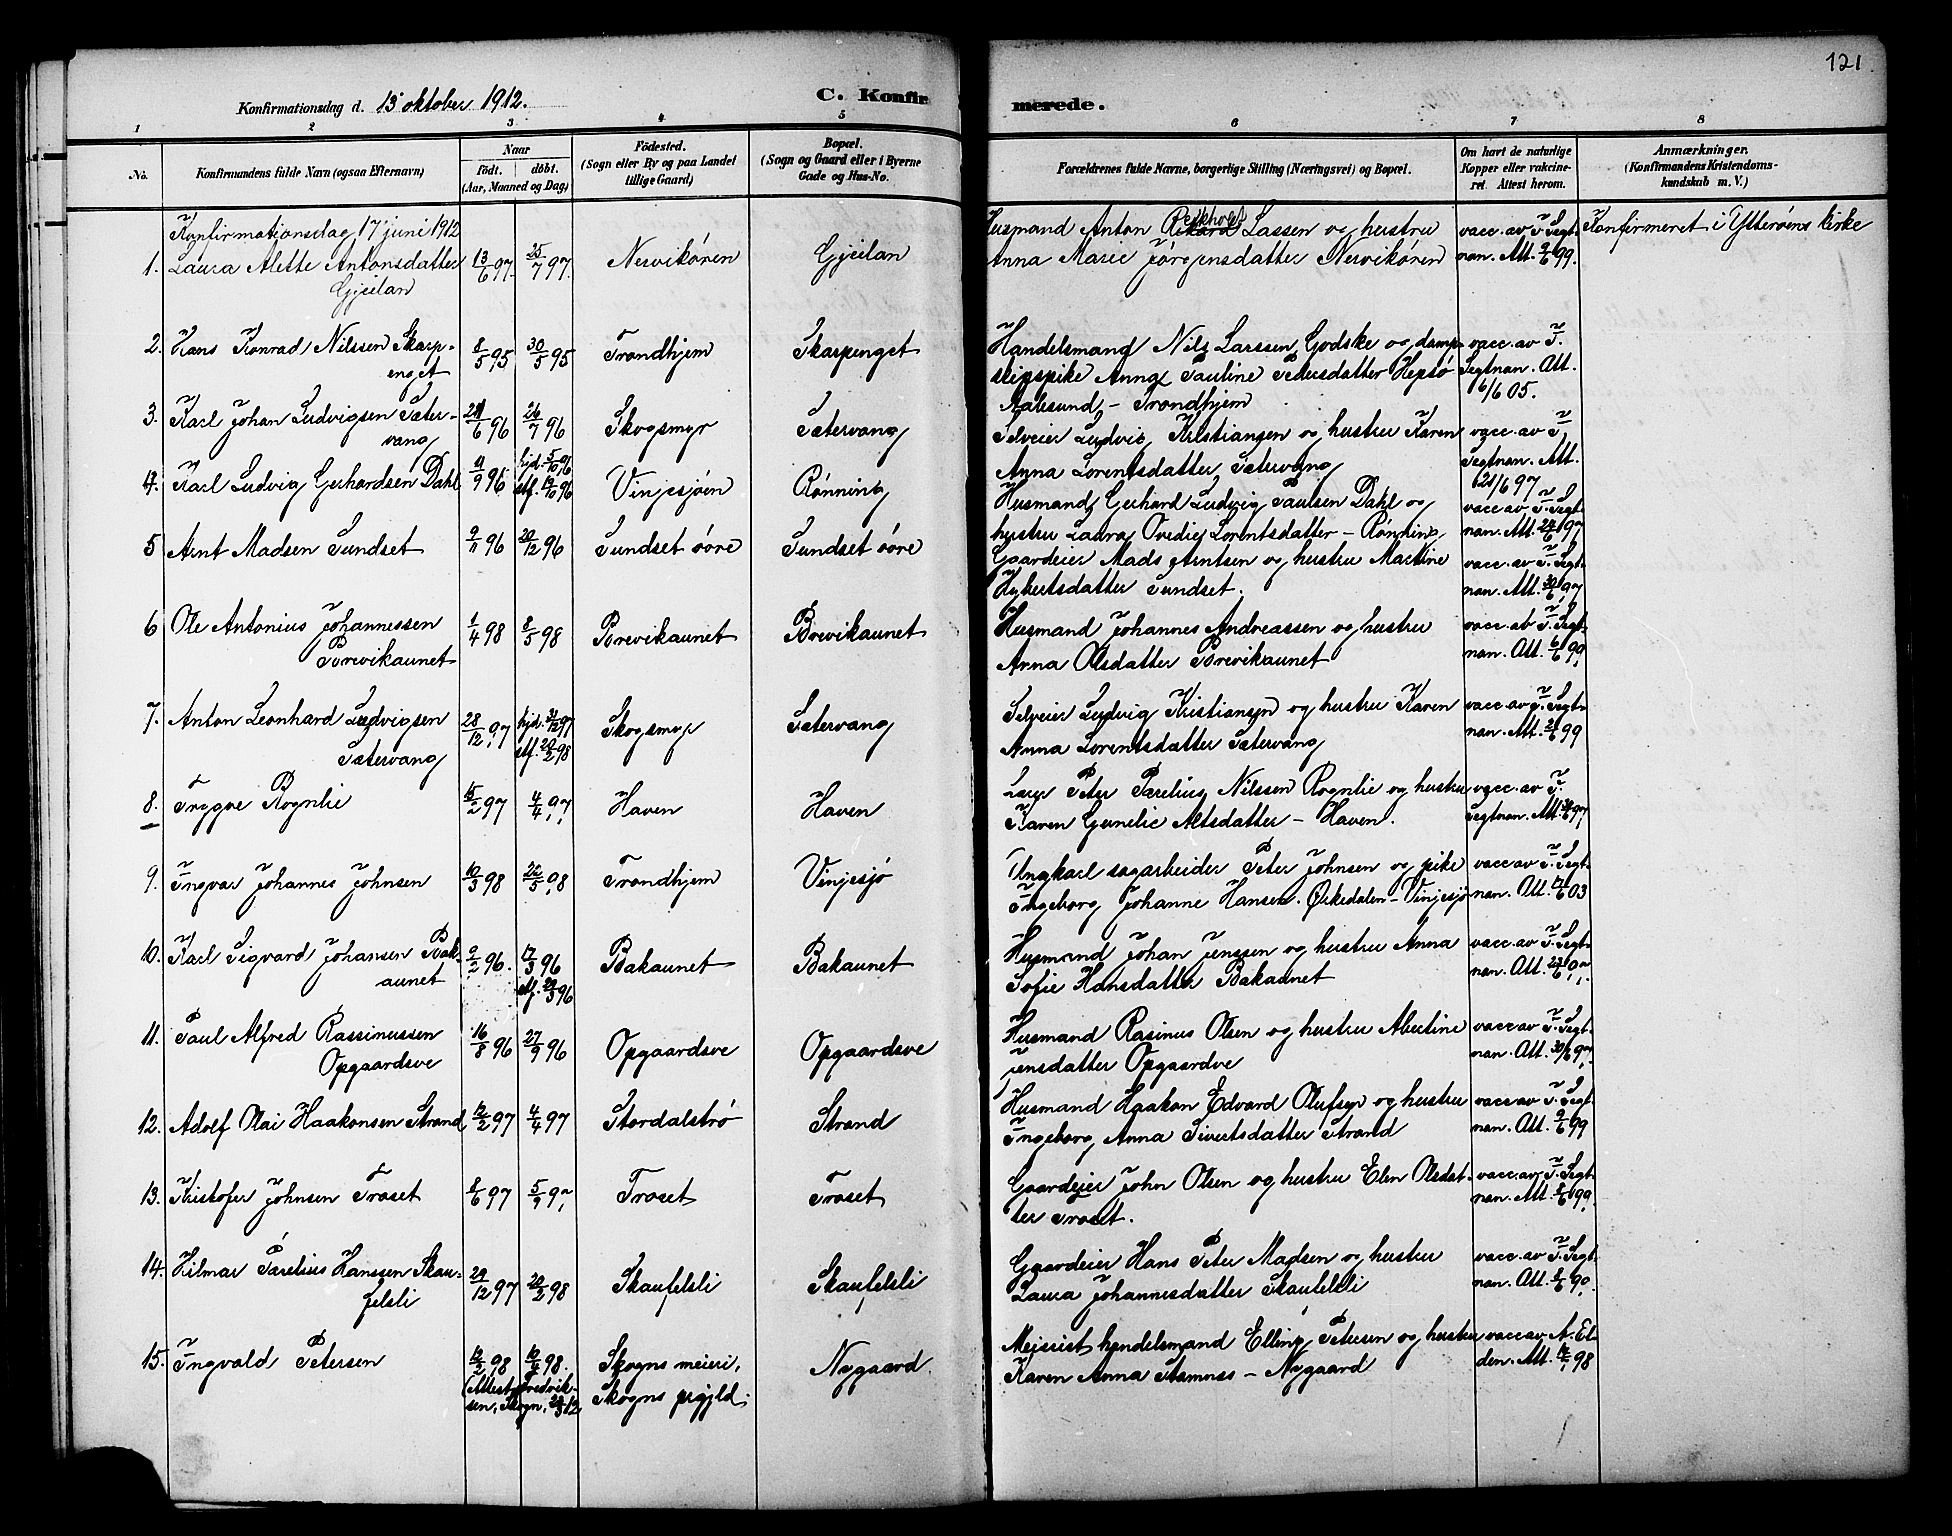 121
Konfirmationsdag d. 13 oktober 1912.
C. Konfirmerede.
1 2 3 4 5 6 7 8
No.
Konfirmandens fulde Navn (ogsaa Efternavn)
Naar
födt. döbt.
(Aar, Maaned og Dag)
Födested.
(Sogn eller By og paa Landet
tillige Gaard)
Bopæl.
(Sogn og Gaard eller i Byerne
Gade og Hus-No.
Forældrenes fulde Navne, borgerlige Stilling (Næringsvei) og Bopæl.
Om havt de naturlige
Kopper eller vakcine-
ret. Attest herom.
Anmærkninger.
(Konfirmandens Kristendoms-
kundskab m. V.)
Konfirmationsdag 17 juni 1912
1. Laura Alette Antonsdatter 13/6 97 25/7 97. Nervikören Gjeilan
Gjeilan
Husmand Anton Lassen og hustru
Anna Marie Jörgensdatter Nervikören
vacc. av I. Segt-
nan. Att. 9/6 99.
Konfirmeret i Ytteröens kirke
2. Hans Konrad Nilssen Skarp- 8/5 95 30/5 95 Trondhjem Skarpenget
enget
Handelsmand Nils Larssen Godske og damp-
skipspike Anna Pauline Pedersdatter Hepsö
Aalesund - Trondhjem
vacc. av I.
Segtnan. Att.
16/6 05.
3. Karl Johan Ludvigsen Sæter- 26/7 96 Skogsmyr Sætervang
vang
Selveier Ludvig Kristiansen og hustru Karen
Anna Lorentsdatter Sætervang
vacc. av I.
Segtnan. Att.
21/6 97
4. Karl Ludvig Gerhardsen Dahl 11/9 96 hjd. 5/10 96 Vinjesjöen Rönning
stf.
Husmand Gerhard Ludvig Paulsen Dahl og
hustru Laura Ovedie Lorentsdatter - Rönning
vacc av I. Segt-
nan. Att. 97
5 Arnt Madsen Sundset 9/11 96 20/12 96 Sundset övre Sundset övre
Gaardeier Mads Arntsen og hustru Martine
Hybertsdatter Sundset.
vacc. av I. Segt-
nan. Att. 30/6 97
6 Ole Antonius Johannessen 1/4 98 8/5 98 Brevikaunet Brevikaunet
Brevikaunet
Husmand Johannes Andreassen og hustru
Anna Olsdatter Brevikaunet
vacc. av I. Segt-
nan. Att. 6/6 99.
7. Anton Leonhard Ludvigsen 28/12 97 hjd. 31/12 97 Skogsmyr Sætervang
Sætervang stf. 20/2 98
Selveier Ludvig Kristiansen og hustru Karen
Anna Lorentsdatter Sætervang
vacc. av I. Segt-
nan. Att. 99
8. Trygve Rognlie 15/2 97 4/4 97 Haven Haven
Lærer Peter Parelius Nilssen Rognlie og hustru
Karen Gurnelie Altsdatter - Haven.
vacc. av I.
Segtnan. Att. 97
9. Ingvar Johannes Johnsen 10/3 98 22/5 98 Trondhjem Vinjesjö
Ungkarl sagarbeider Peter Johnsen og pike
Ingeborg Johanne Hansen. Örkedalen - Vinjesjö
vacc av I. Segt-
nan. Att. 03
10. Karl Sigvard Johansen Bak- 9/2 96. 17/3 96 Bakaunet Bakaunet
aunet stf. 29/3 96
Husmand Johan Jenssen og hustru Anna
Sofie Hansdatter Bakaunet
vacc. av I. Segt-
nan. Att.
11. Paul Alfred Rassinussen 16/8 96 27/9 96 Opgaardsve Opgaardsve
Opgaardsve
Husmand Rasinus Olsen og hustru Abertine
Jensdatter Opgaardve
vacc av I. Segt-
nan. Att. 30/6 97
12. Adolf Olai Haakonsen Strand 12/2 97 4/4 97 Stordalströ Strand
Husmand Haakon Edvard Olufsen og hustru
Ingeborg Anna Sivertsdatter Strand
vacc av I. Segt-
nan. Att. 9/6 99
13. Kristofer Johnsen Troset 8/6 97 5/9 97 Troset Troset
Gaardeier John Olsen og hustru Elen Olsdat-
ter Troset.
vacc. av I. Segt-
nan. Att. 99.
14. Hilmar Parelius Hanssen Skau- 29/12 97 20/2 98 Skaufelsli Skaufelsli
felsli
Gaardeier Hans Peter Madsen og hustru
Laura Johannesdatter Skaufelsli
vacc. av I. Segt-
nan. Att.
15. Ingvald Petersen 12/2 98 10/4 98. Skogns meieri, Nygaard
(Attest Fredrik- Skogns prgjld.
sen, Skogn, 12
Meierist handelsmand Elling Petersen og hustru
Karen Anna Stamnes - Nygaard
vacc av A. El-
den. Att. 98